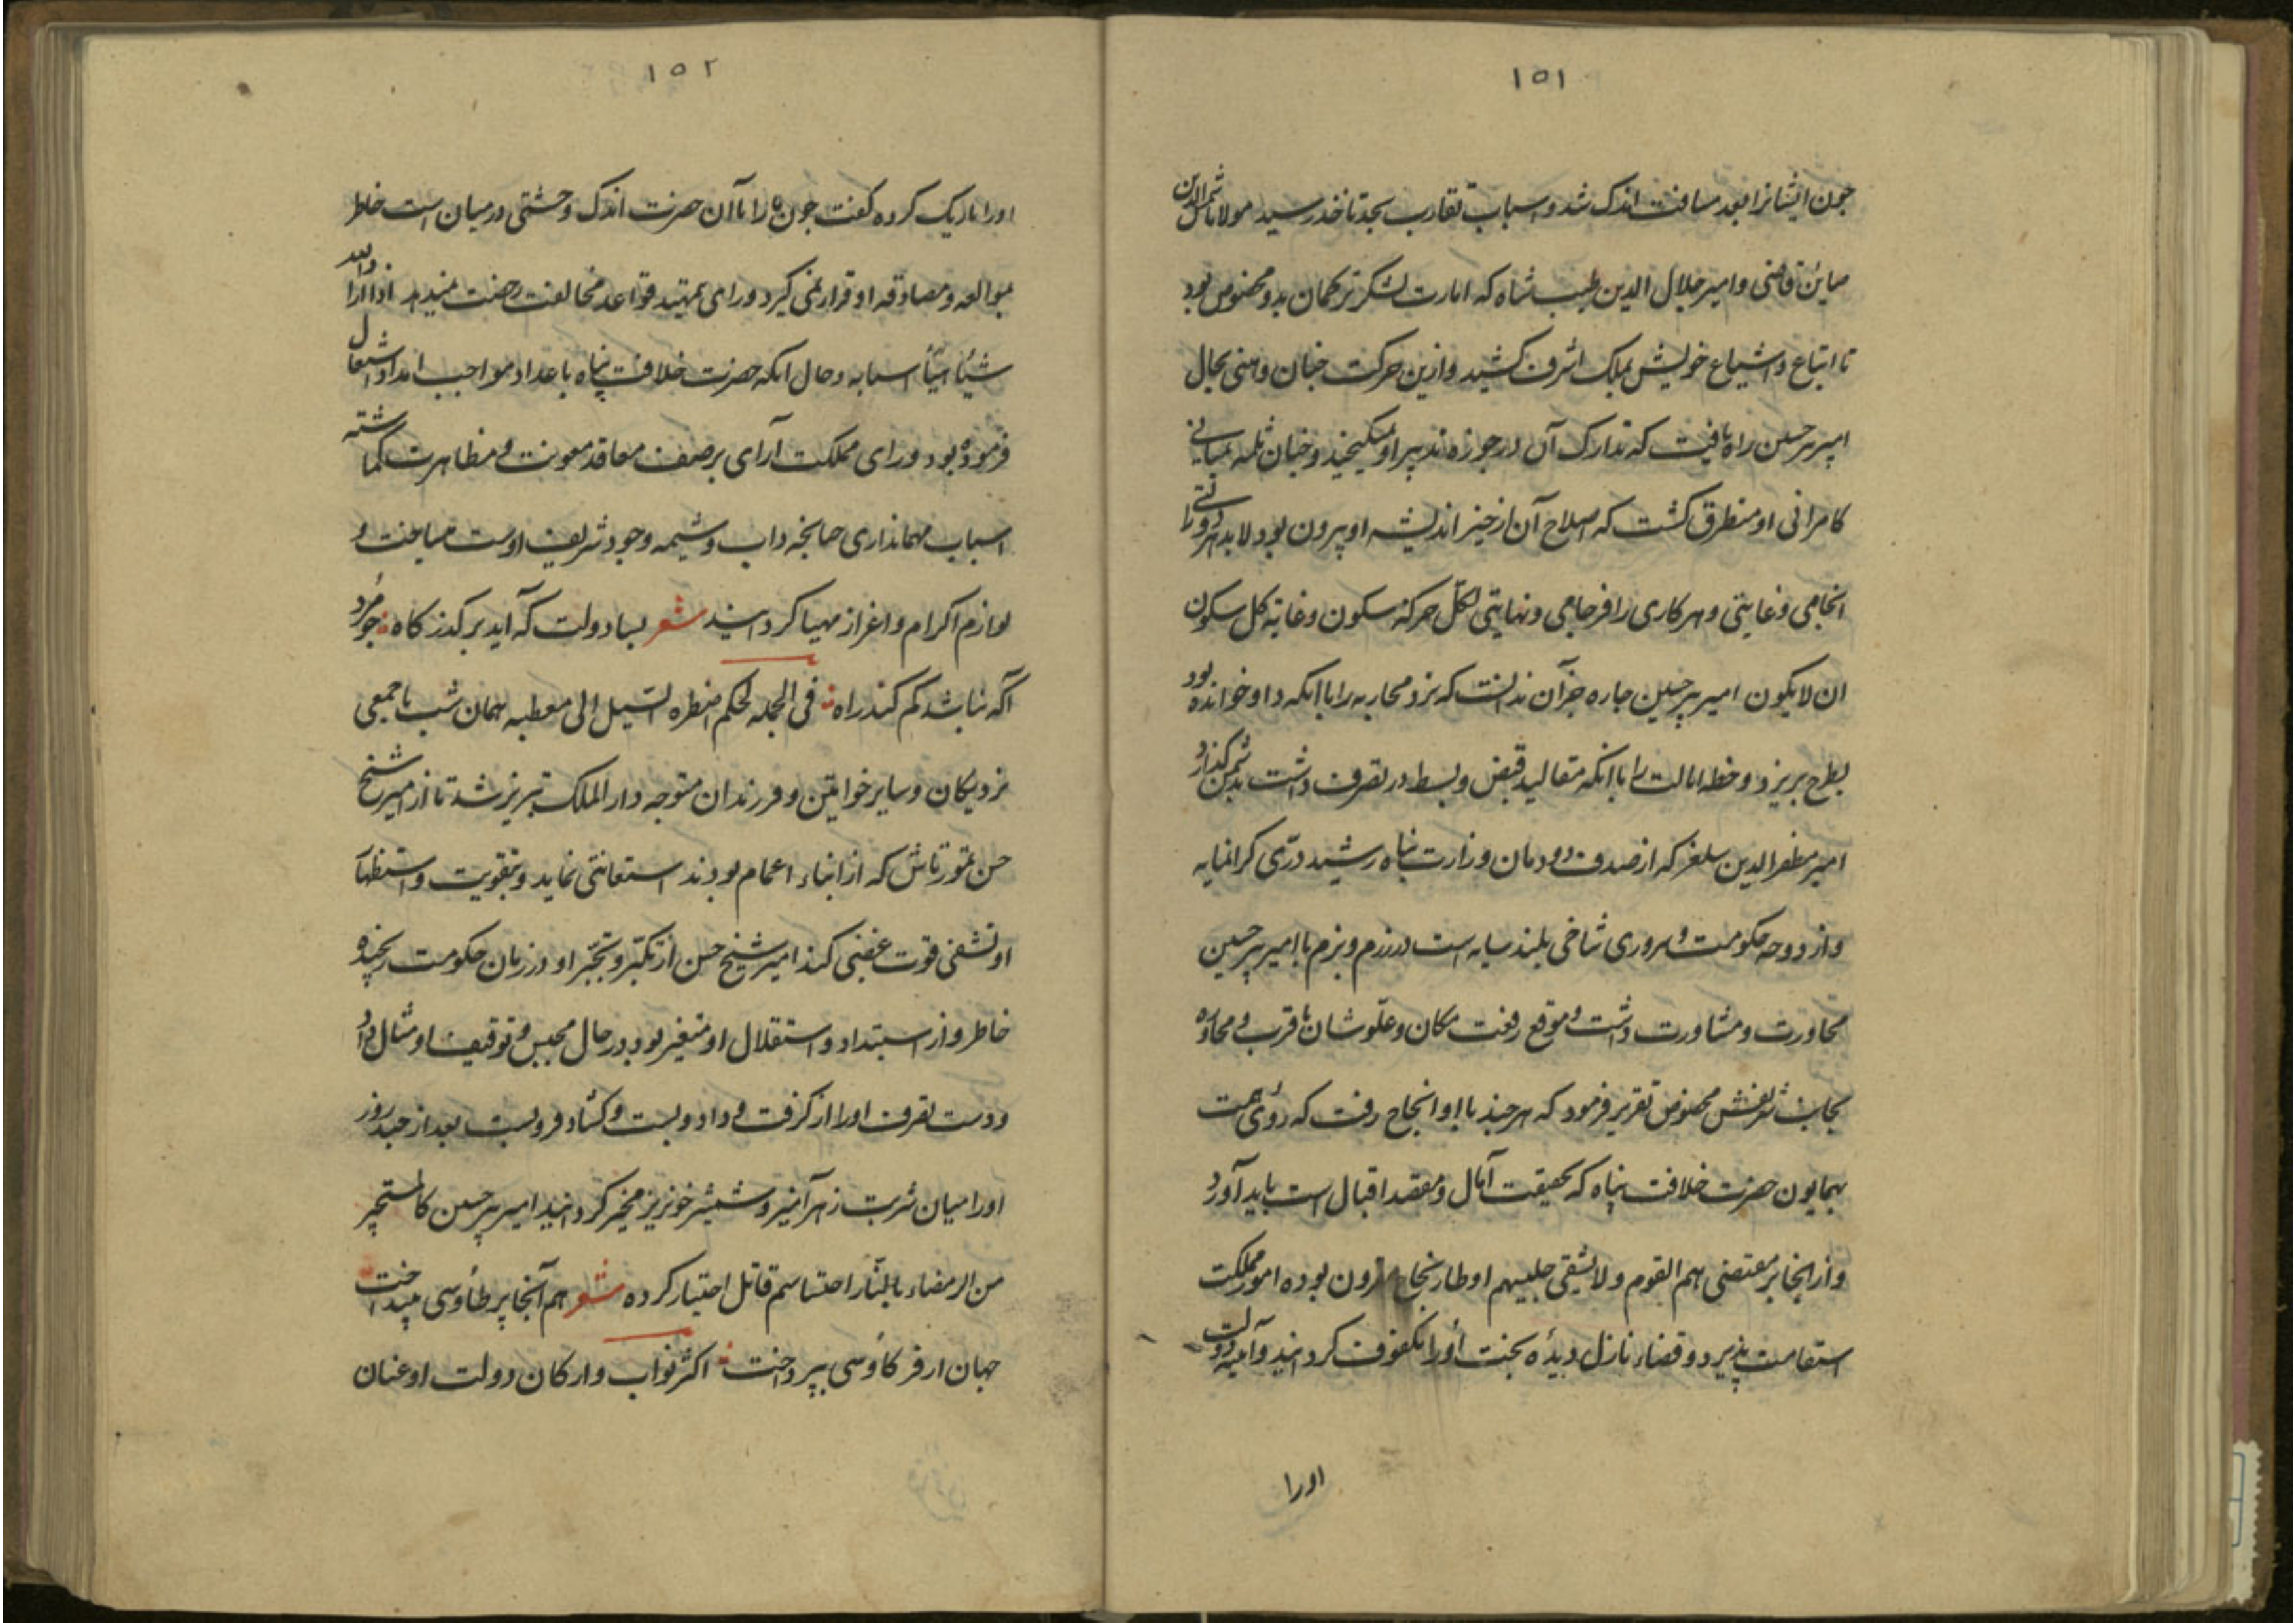 ١٥١
جون ایشانرا بعد مسافت اندک شد و اسباب تقارب بجد تاخذ رسید مولانا شمس الدین
صاین قاضی و امیر جلال الدین طیب شاه که امارت لشکر ترکمان بدو مخصوص بود
تا اتباع و اشیاع خویش بملک اشرف کشید و ازین حرکت جنان وهنی بحال
امیر پیر حسین راه یافت که تدارک آن در حوزه تدبیر او نمیکنجید و جنان ثلمه بمبانی
کامرانی او متطرق کشت که اصلاح آن از حیز اندیشه او بیرون بود لابد هر دولتی را
انجامی و غایتی و هر کاری را فرجامی و نهایتی لکل حرکة سکون و غایة کل سکون
ان لا یکون امیر پیر حسین جاره جز آن ندانست که نرد محاربه را با انکه داو خوانده بود
بطرح بریزد و خطه ایالت را با انکه مقالید قبض و بسط در تصرف داشت بدشمن کذارد
امیر مظفر الدین سلغر که از صدف دودمان وزارت پناه رشید درّی کرانمایه
و از دوحه حکومت و سروری شاخی بلند سایه است در رزم و بزم با امیر پیر حسین
محاورت و مشاورت داشت و موقع رفعت مکان و علو شان با قرب و مجاوره
بجانب شریفش مخصوص تقریر فرمود که هر جند با او الحاح رفت که روی همت
بهمایون حضرت خلافت پناه که بحقیقت آمال و مقصد اقبال است باید آورد
و از انجا بر مقتضی هم القوم و لا یشقی جلیسهم اوطار بنجاح مقرون بوده امور مملکت
استقامت پذیرد و قضاء نازل دیدهٔ بخت او را مکفوف کردانید و آمینه دولت
اورا
١٥٢
اورا تاریک کرده کفت جون ما را با آن حضرت اندک وحشتی در میان است خاطر
بموالفه و مصادقه او قرار نمی کیرد و رای بتمهید قواعد مخالفت رخصت نمیدهد اذا اراد الله
شیئا هیّأ اسبابه و حال انکه حضرت خلافت پناه باعداد مواجب امداد و اشتعال
فرموده بود و رای مملکت آرای بر صنف معاقد معونت و مظاهرت کماشته
اسباب مهمانداری جنانجه داب و شیمه وجود شریف اوست ساخت و
لوازم اکرام و اعزاز مهیا کردانید شعر بسا دولت که آید بر کذرکاه جو مرد
آکه نباشد کم کند راه فی الجمله بحکم اضطره السیل الی معطبه همان شب با جمعی
نزدیکان و سایر خواتین و فرزندان متوجه دار الملک تبریز شد تا از امیر شیخ
حسن تمورتاش که از ابناء اعمام بودند استعانتی نماید و بتقویت و استظهار
او تشفی قوت غضبی کند امیر شیخ حسن از تکبر و تجبر او در زمان حکومت رنجیده
خاطر و از استبداد و استقلال او متغیر بود در حال بحبس و توقیف او مثال داد
و دست تصرف او را از کرفت و داد و بست و کشاد فرو بست بعد از جند روز
اورا میان شربت زهر آمیز و شمشیر خونریز مخیر کردانید امیر پیر حسین کالمستجیر
من الرمضاء بالنار احتسا سم قاتل اختیار کرده شعر هم آنجا پر طاوسی میندا خت
جهان از فر کاوسی بپرداخت اکثر نواب و ارکان دولت او عنان